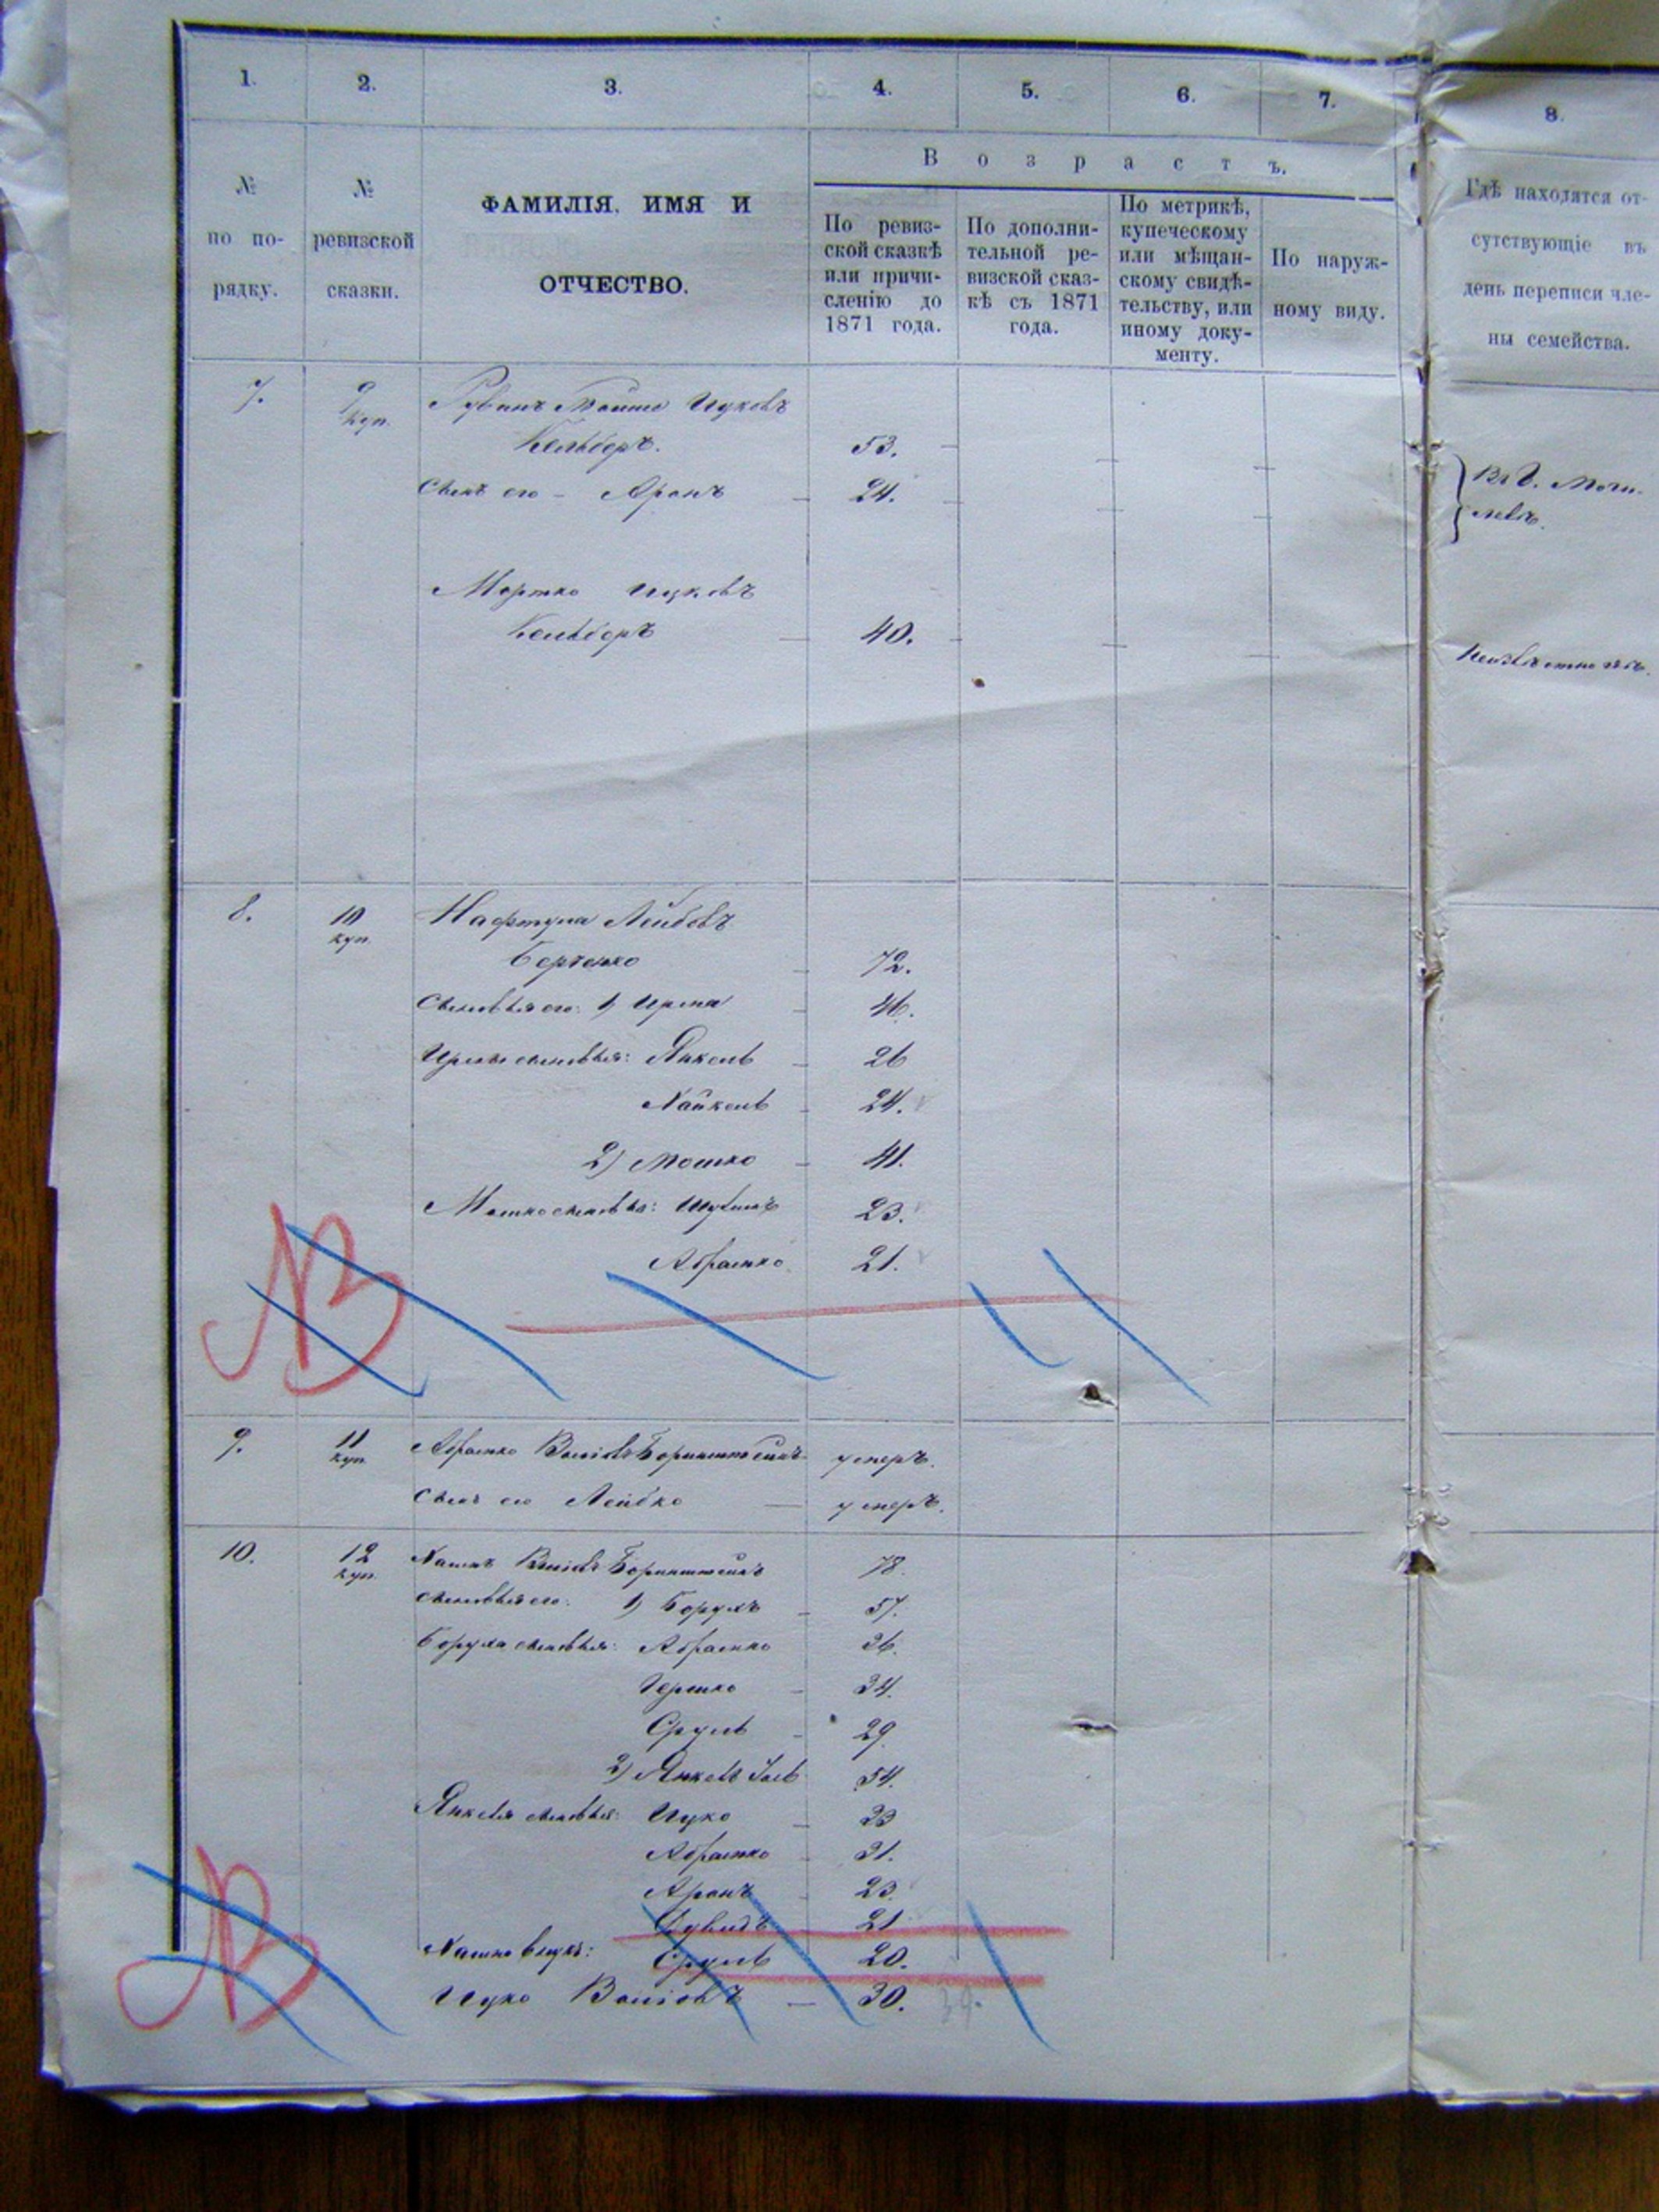 1. 2. 3. 4. 5. 6. 7. 8.
Возрастъ.
№ по порядку.
№ ревизской сказки.
ФАМИЛІЯ, ИМЯ И
ОТЧЕСТВО.
По ревиз-
ской сказкѣ
или причи-
сленію до
1871 года.
По дополни-
тельной ре-
визской сказ-
кѣ съ 1871
года.
По метрикѣ,
купеческому
или мѣщан-
скому свидѣ-
тельству, или
иному доку-
менту.
По наруж-
ному виду.
Гдѣ находятся от-
сутствующіе въ
день переписи чле-
ны семейства.
7. 9 куп. Рувинъ Мошко Ицковъ
53.
Сынъ его - Аронъ 24.
Въ г. Моги-
левѣ.
Мортко Ицковъ
40.
Неизвѣстно гдѣ.
8. 10 куп. Нафтула Лейбовъ
72.
Сыновья его: 1) Ирма 46.
Ирмы сыновья: Янкель 26
Хайкель 24.
2) Мошко 41.
Мошко сыновья: 23.
Абрамко 21.
NB
9. 11 куп. Абрамко Боринштейнъ умеръ.
Сынъ его Лейбко умеръ.
10. 12 куп. Боринштейнъ 78.
Сыновья его: 1) Борухъ 57.
Боруха сыновья: Абрамко 36.
Гершко 34.
Сруль 29.
2) Янкель 54.
Янкеля сыновья: Ицко 33
Абрамко 31.
Аронъ 23.
Дувидъ 21
внукъ: Сруль 20.
Ицко 30.
NB